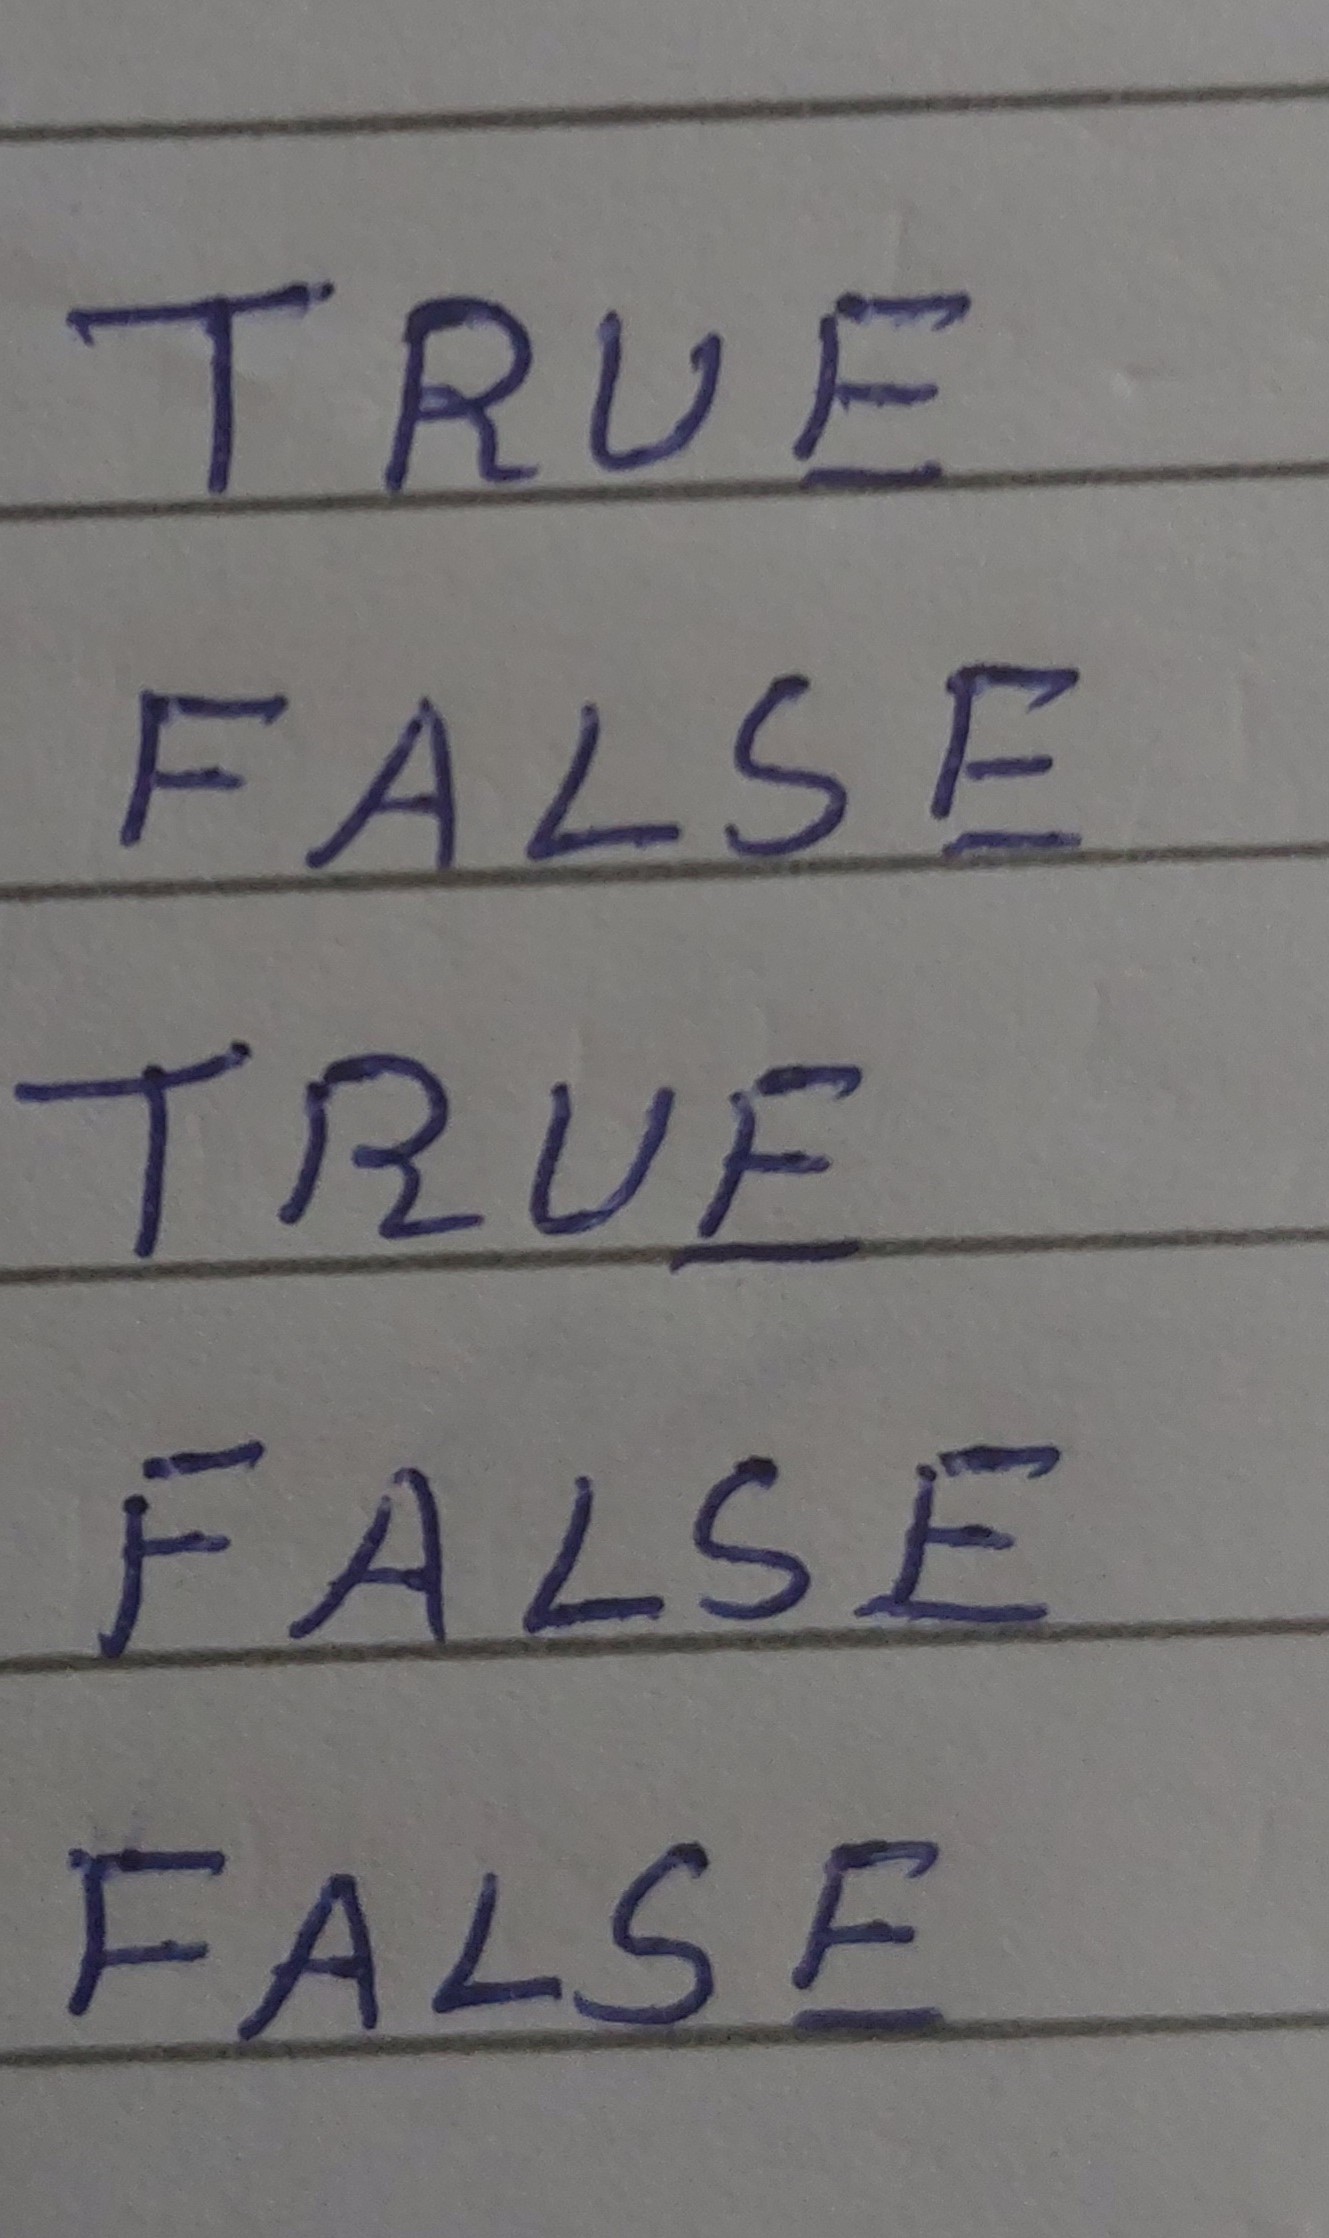 TRUE
FALSE
TRUE
FALSE
FALSE